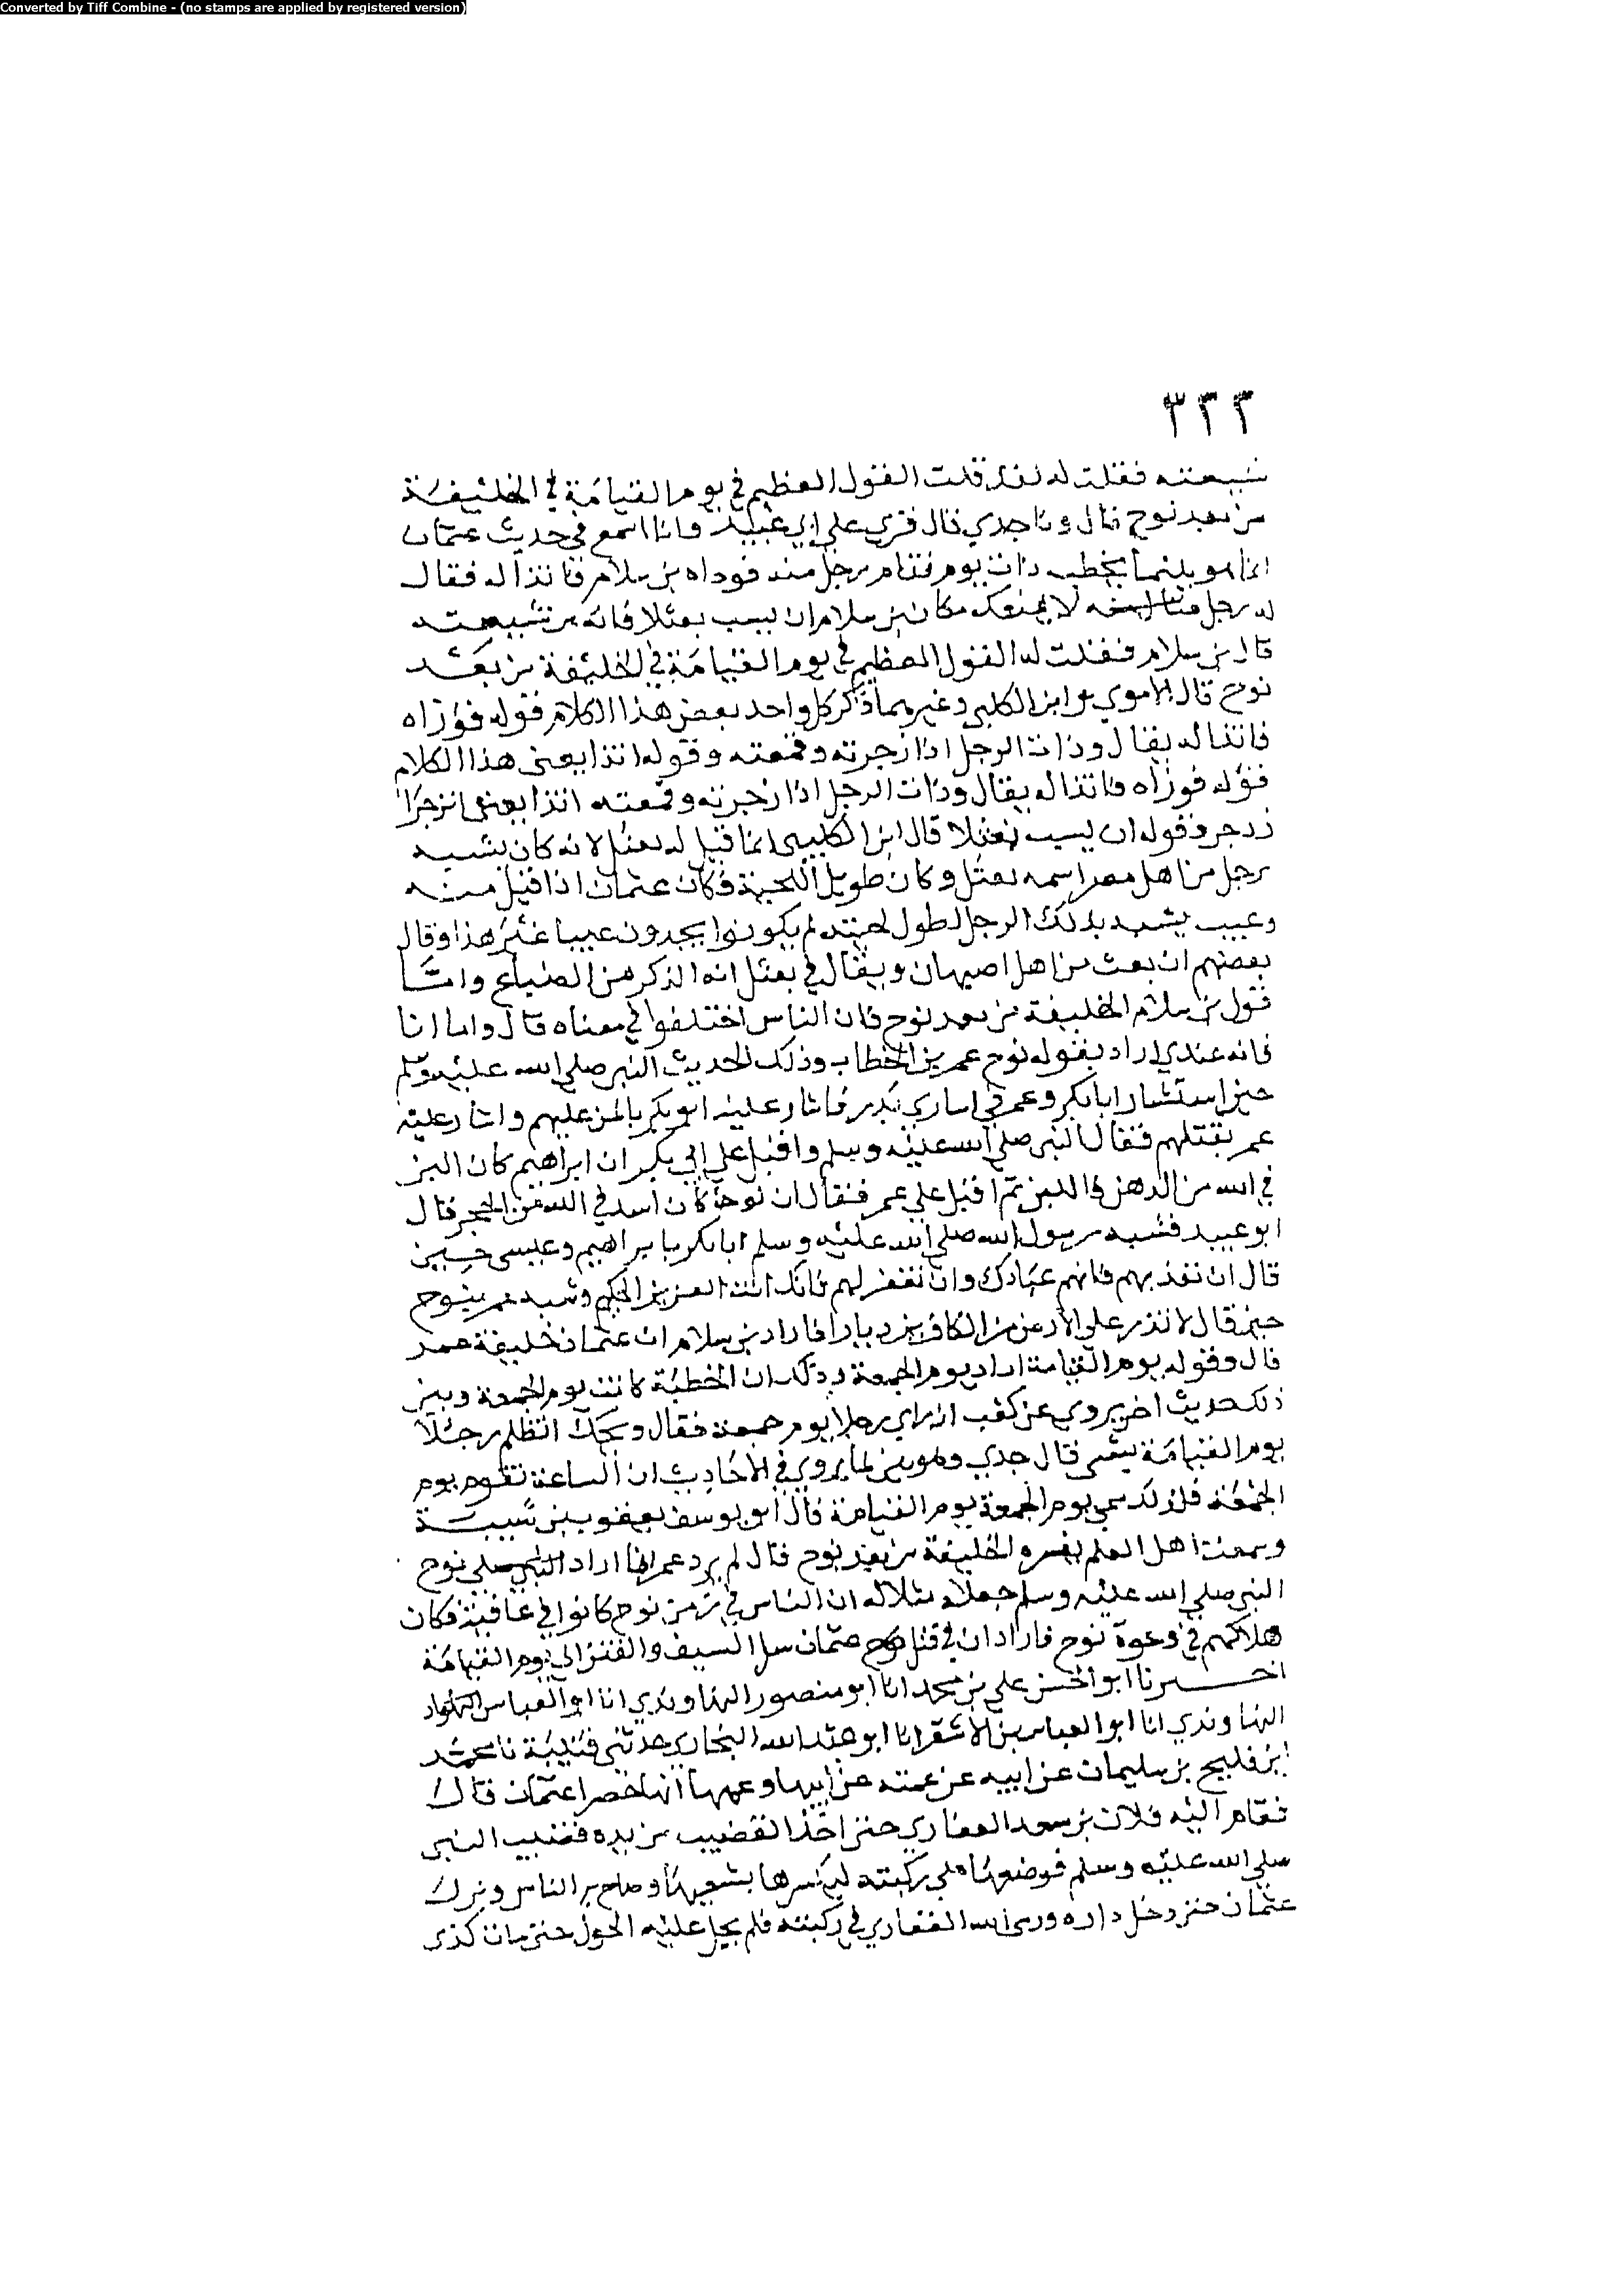 Converted by Tiff Combine - (no stamps are applied by registered version)
٣٣٣
شيعته فقلت له لقد قلت القول العظيم في يوم القيامة في الخليفة
من بعد نوح قال ونا جدي قال قري على ابي عبيد وانا اسمع في حديث عثمان
انه هو بينما يخطب ذات يوم فقام رجل منه فوداه بن سلام فاتذا له فقال
له رجل لا يمنعك مكان بن سلام ان تسب نعثلا فانه من شيعته
قال بن سلام فقلت له القول العظيم في يوم القيامة في الخليفة من بعد
نوح قال الاموي وابن الكلبي وغيرهما ذكر كل واحد بعض هذا الكلام قوله فوذاه
فاتذا له يقال وذات الرجل اذا زجرته وقمعته وقوله اتذا يعني هذا الكلام
قوله فوذاه فاتذا له يقال وذات الرجل اذا زجرته وقمعته اتذا يعني انزجرا
زدجر وقوله ان يسب نعثلا قال ابن الكلبي انما قيل له نعثل لانه كان يشبه
برجل من اهل مصر اسمه نعثل وكان طويل اللحية فكان عثمان اذا قيل منه
وعيب يشبه بذلك الرجل لطول لحيته لم يكونوا يجدون عيبا غير هذا وقال
بعضهم ان نعث من اهل اصبهان ويقال في نعثل انه الذكر من الضباع واما
قول بن سلام الخليفة من بعد نوح فان الناس اختلفوا في معناه قال واما انا
فانه عندي اراد بقوله نوح عمر بن الخطاب وذلك لحديث النبي صلى الله عليه وسلم
حين استشار ابا بكر وعمر في اساري بدر فاشار عليه ابو بكر بالمن عليهم واشار عليه
عمر بقتلهم فقال النبي صلى الله عليه وسلم واقبل على ابي بكر ان ابراهيم كان الين
في الله من الدهن في اللبن ثم اقبل على عمر فقال ان نوحا كان اشد في الله من الحجر قال
ابو عبيد فشبه رسول الله صلى الله عليه وسلم ابا بكر بابراهيم وعيسى حين
قال ان تعذبهم فانهم عبادك وان تغفر لهم فانك انت العزيز الحكيم وشبه عمر بنوح
حين قال لا تذر على الارض من الكافرين ديارا فاراد بن سلام ان عثمان خليفة عمر
قال وقوله يوم القيامة اراد يوم الجمعة وذلك ان الخطبة كانت يوم الجمعة وبين
ذلك حديث اخر يروي عن كعب انه راي رجلا يوم جمعة فقال ويحك اتظلم رجلا
يوم القيامة قال جدي وهو بين لما يروي في الاحاديث ان الساعة تقوم يوم
الجمعة فلذلك سمي يوم الجمعة يوم القيامة قال ابو يوسف يعقوب بن شيبة
وسمعت اهل العلم يفسرو الخليفة من بعد نوح قال لم يرد عمر انما اراد نوح
النبي صلى الله عليه وسلم جعله مثلا له ان الناس في زمن نوح كانوا في عافية فكان
هلاكهم في دعوة نوح فاراد ان في قتل عثمان سل السيف والفتن الى يوم القيامة
اخبرنا ابو الحسن علي بن محمد انا ابو منصور النهاوندي انا ابو العباس
النهاوندي انا ابو العباس بن الاشقر انا ابو عبد الله البخاري حدثني قتيبة نا محمد
ابن فليح بن سليمان عن ابيه عن عمته عن ابيها وعمها انهما حضرا عثمان قال
فقام اليه فلان بن سعد الغفاري حتى اخذ القضيب من يده قضيب النبي
صلى الله عليه وسلم فوضعها على ركبته ليكسرها بشعبها وصاح به الناس ونزل
عثمان حتى دخل داره ورمى الله الغفاري في ركبته فلم يحل عليه الحول حتى مات كذى